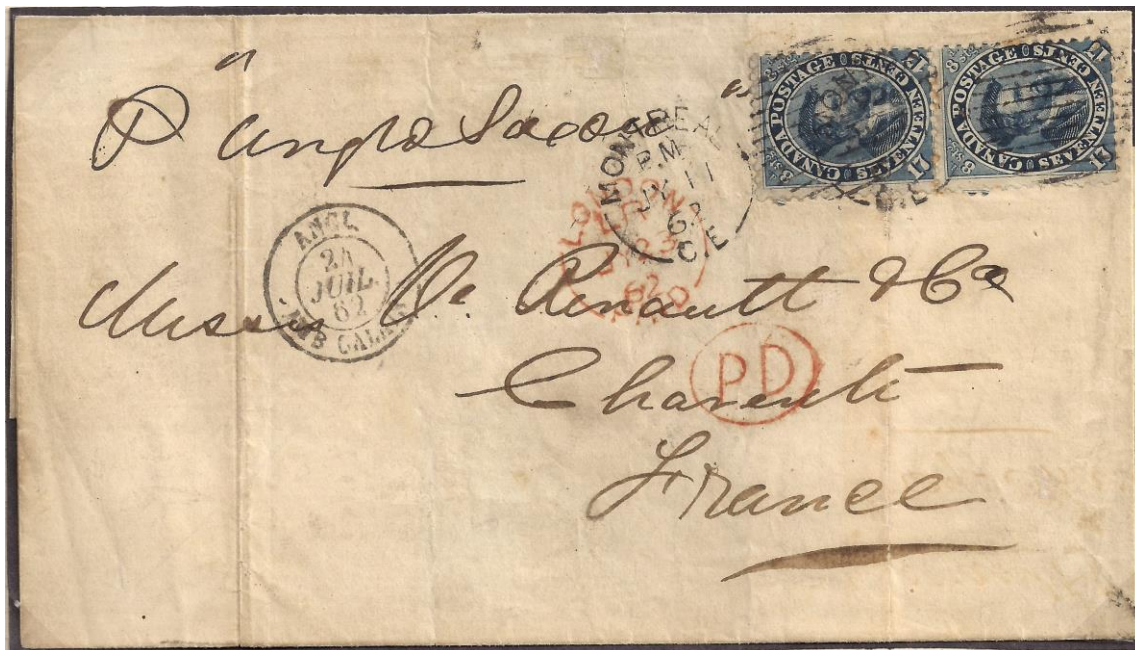 P "Anglo Saxon"
CANADA POSTAGE SEVENTEEN CENTS
17
17
8 stg 8 stg
CANADA POSTAGE SEVENTEEN CENTS
17
17
8 stg 8 stg
MONTREAL
P.M
JY 11
62
C.E
LONDON
JY 23
62
PAID
ANGL.
24
JUIL.
62
CALAIS
Messrs Renault & Co
PD
Charente
France